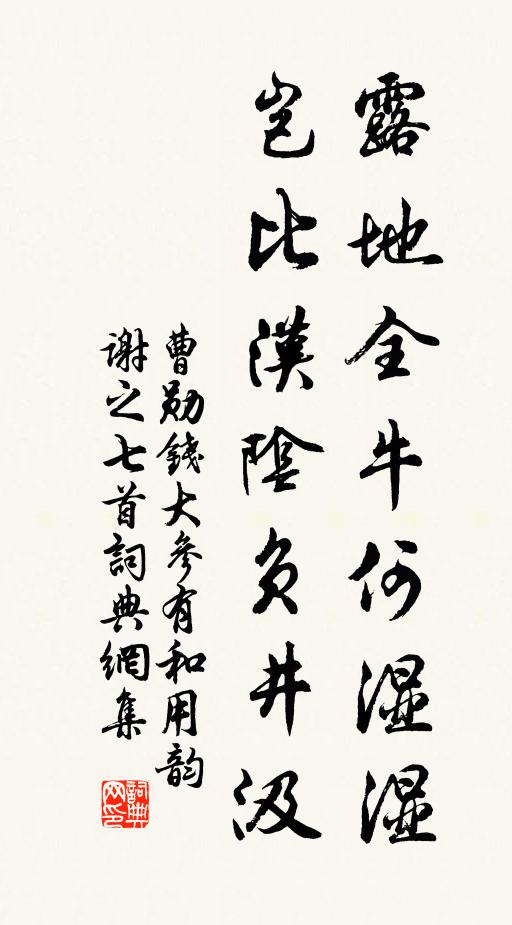 露地全牛何濕濕
豈比漢陰負井汲
曹勛錢大參有和用韵
謝之七首詞典網集
詞典网印